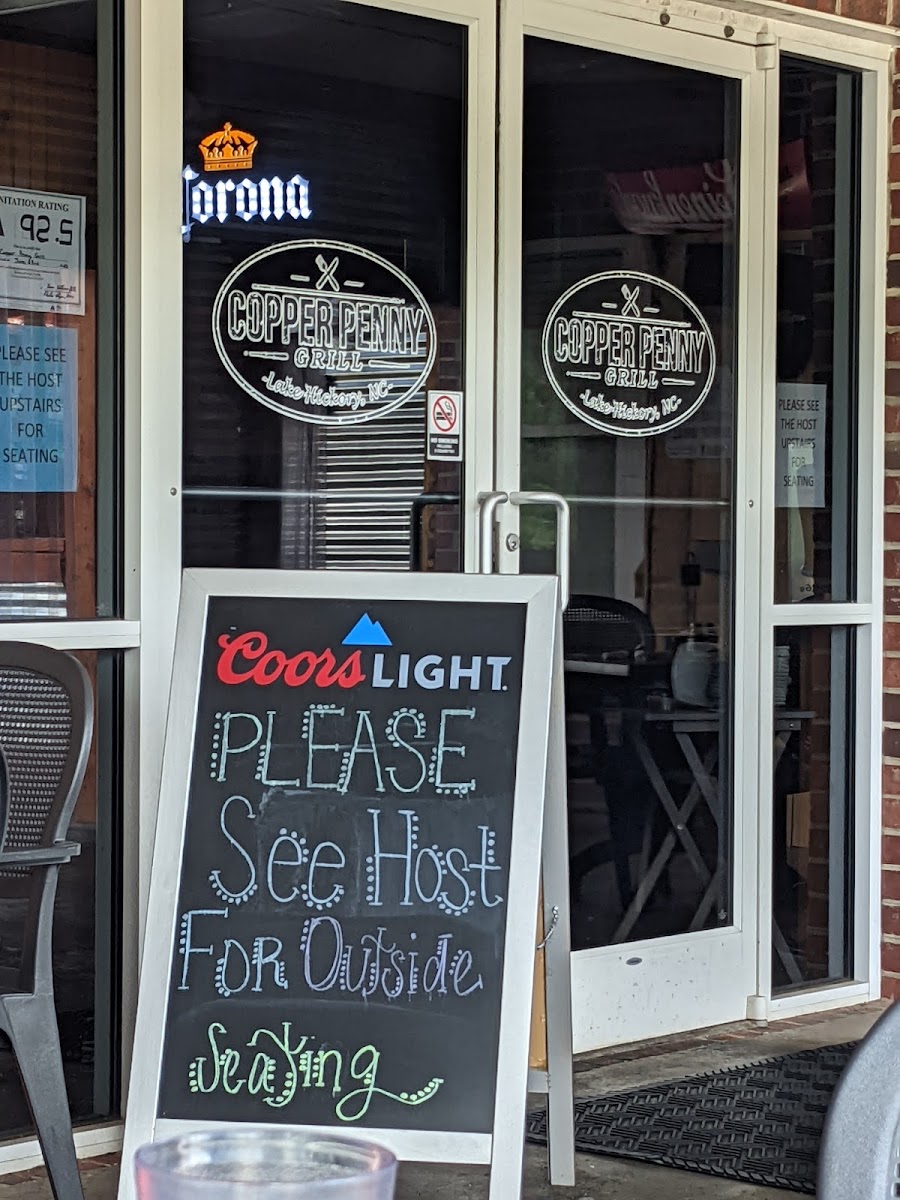 Corona
NITATION RATING
92.5
COPPER PENNY
GRILL
-Lake Hickory, NC-
COPPER PENNY
GRILL
-Lake Hickory, NC-
Heineken
NO SMOKING
PLEASE SEE
THE HOST
UPSTAIRS
FOR
SEATING
PLEASE SEE
THE HOST
UPSTAIRS
FOR
SEATING
Coors LIGHT
PLEASE
See Host
FOR Outside
Seating